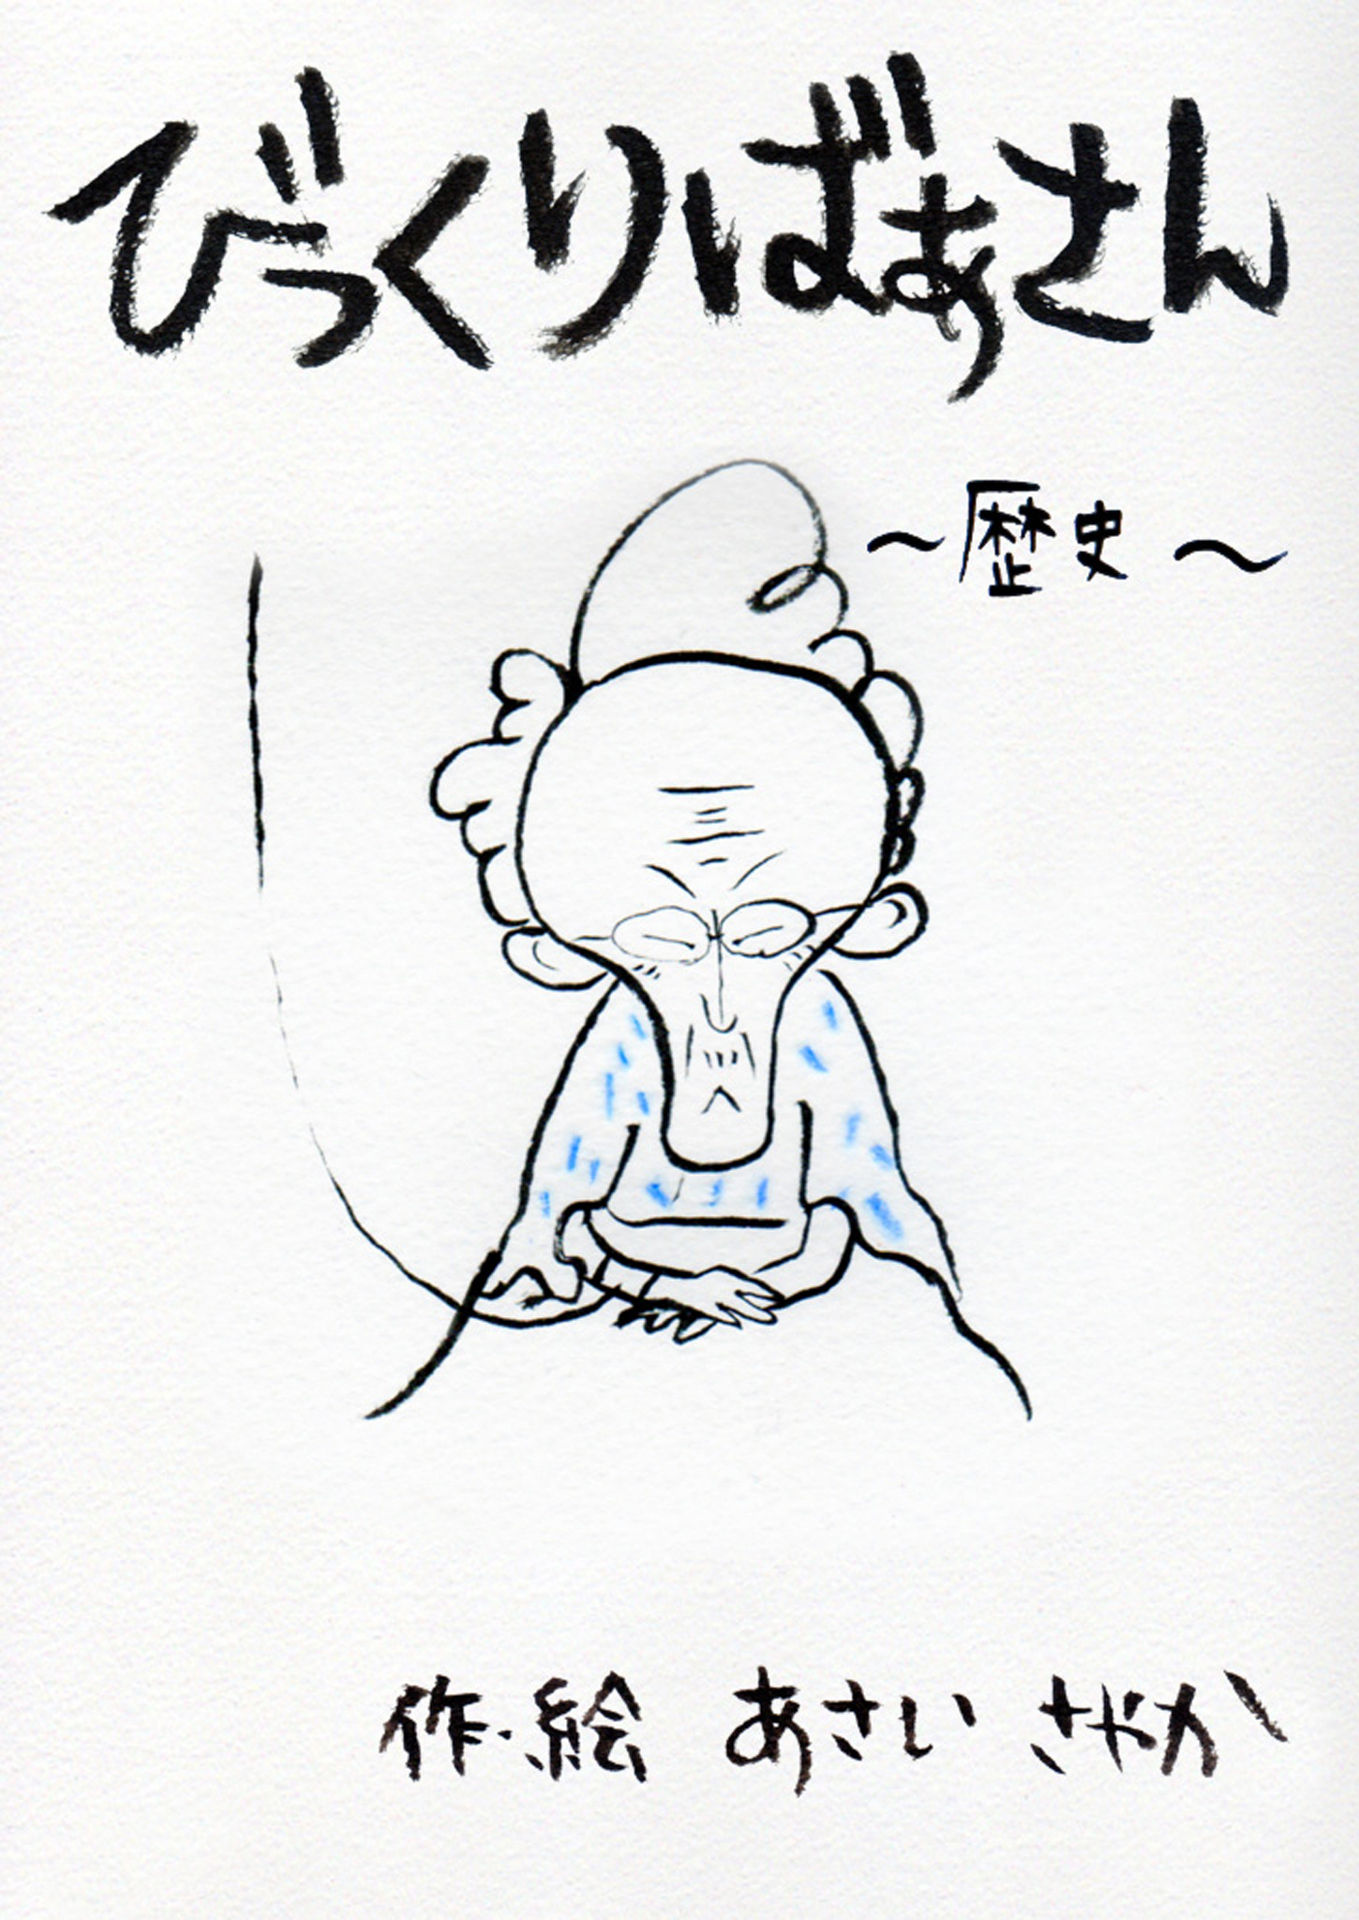 びっくりばぁさん
～歴史～
作・絵 あさい さやか